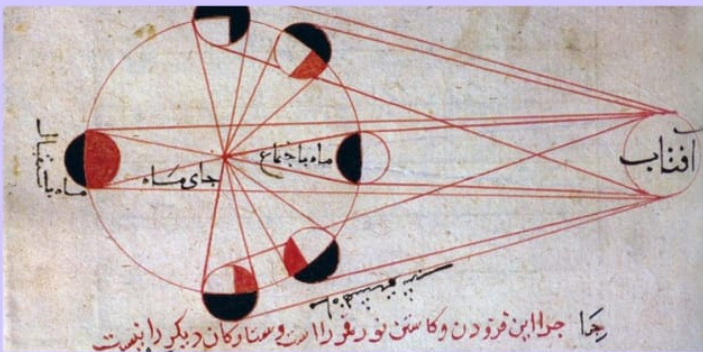 افتاب
ماه باجتماع
جای ماه
ماه باستقبال
چرا این فزودن و کاستن نور قمر را است و ستارکان دیکر را نیست